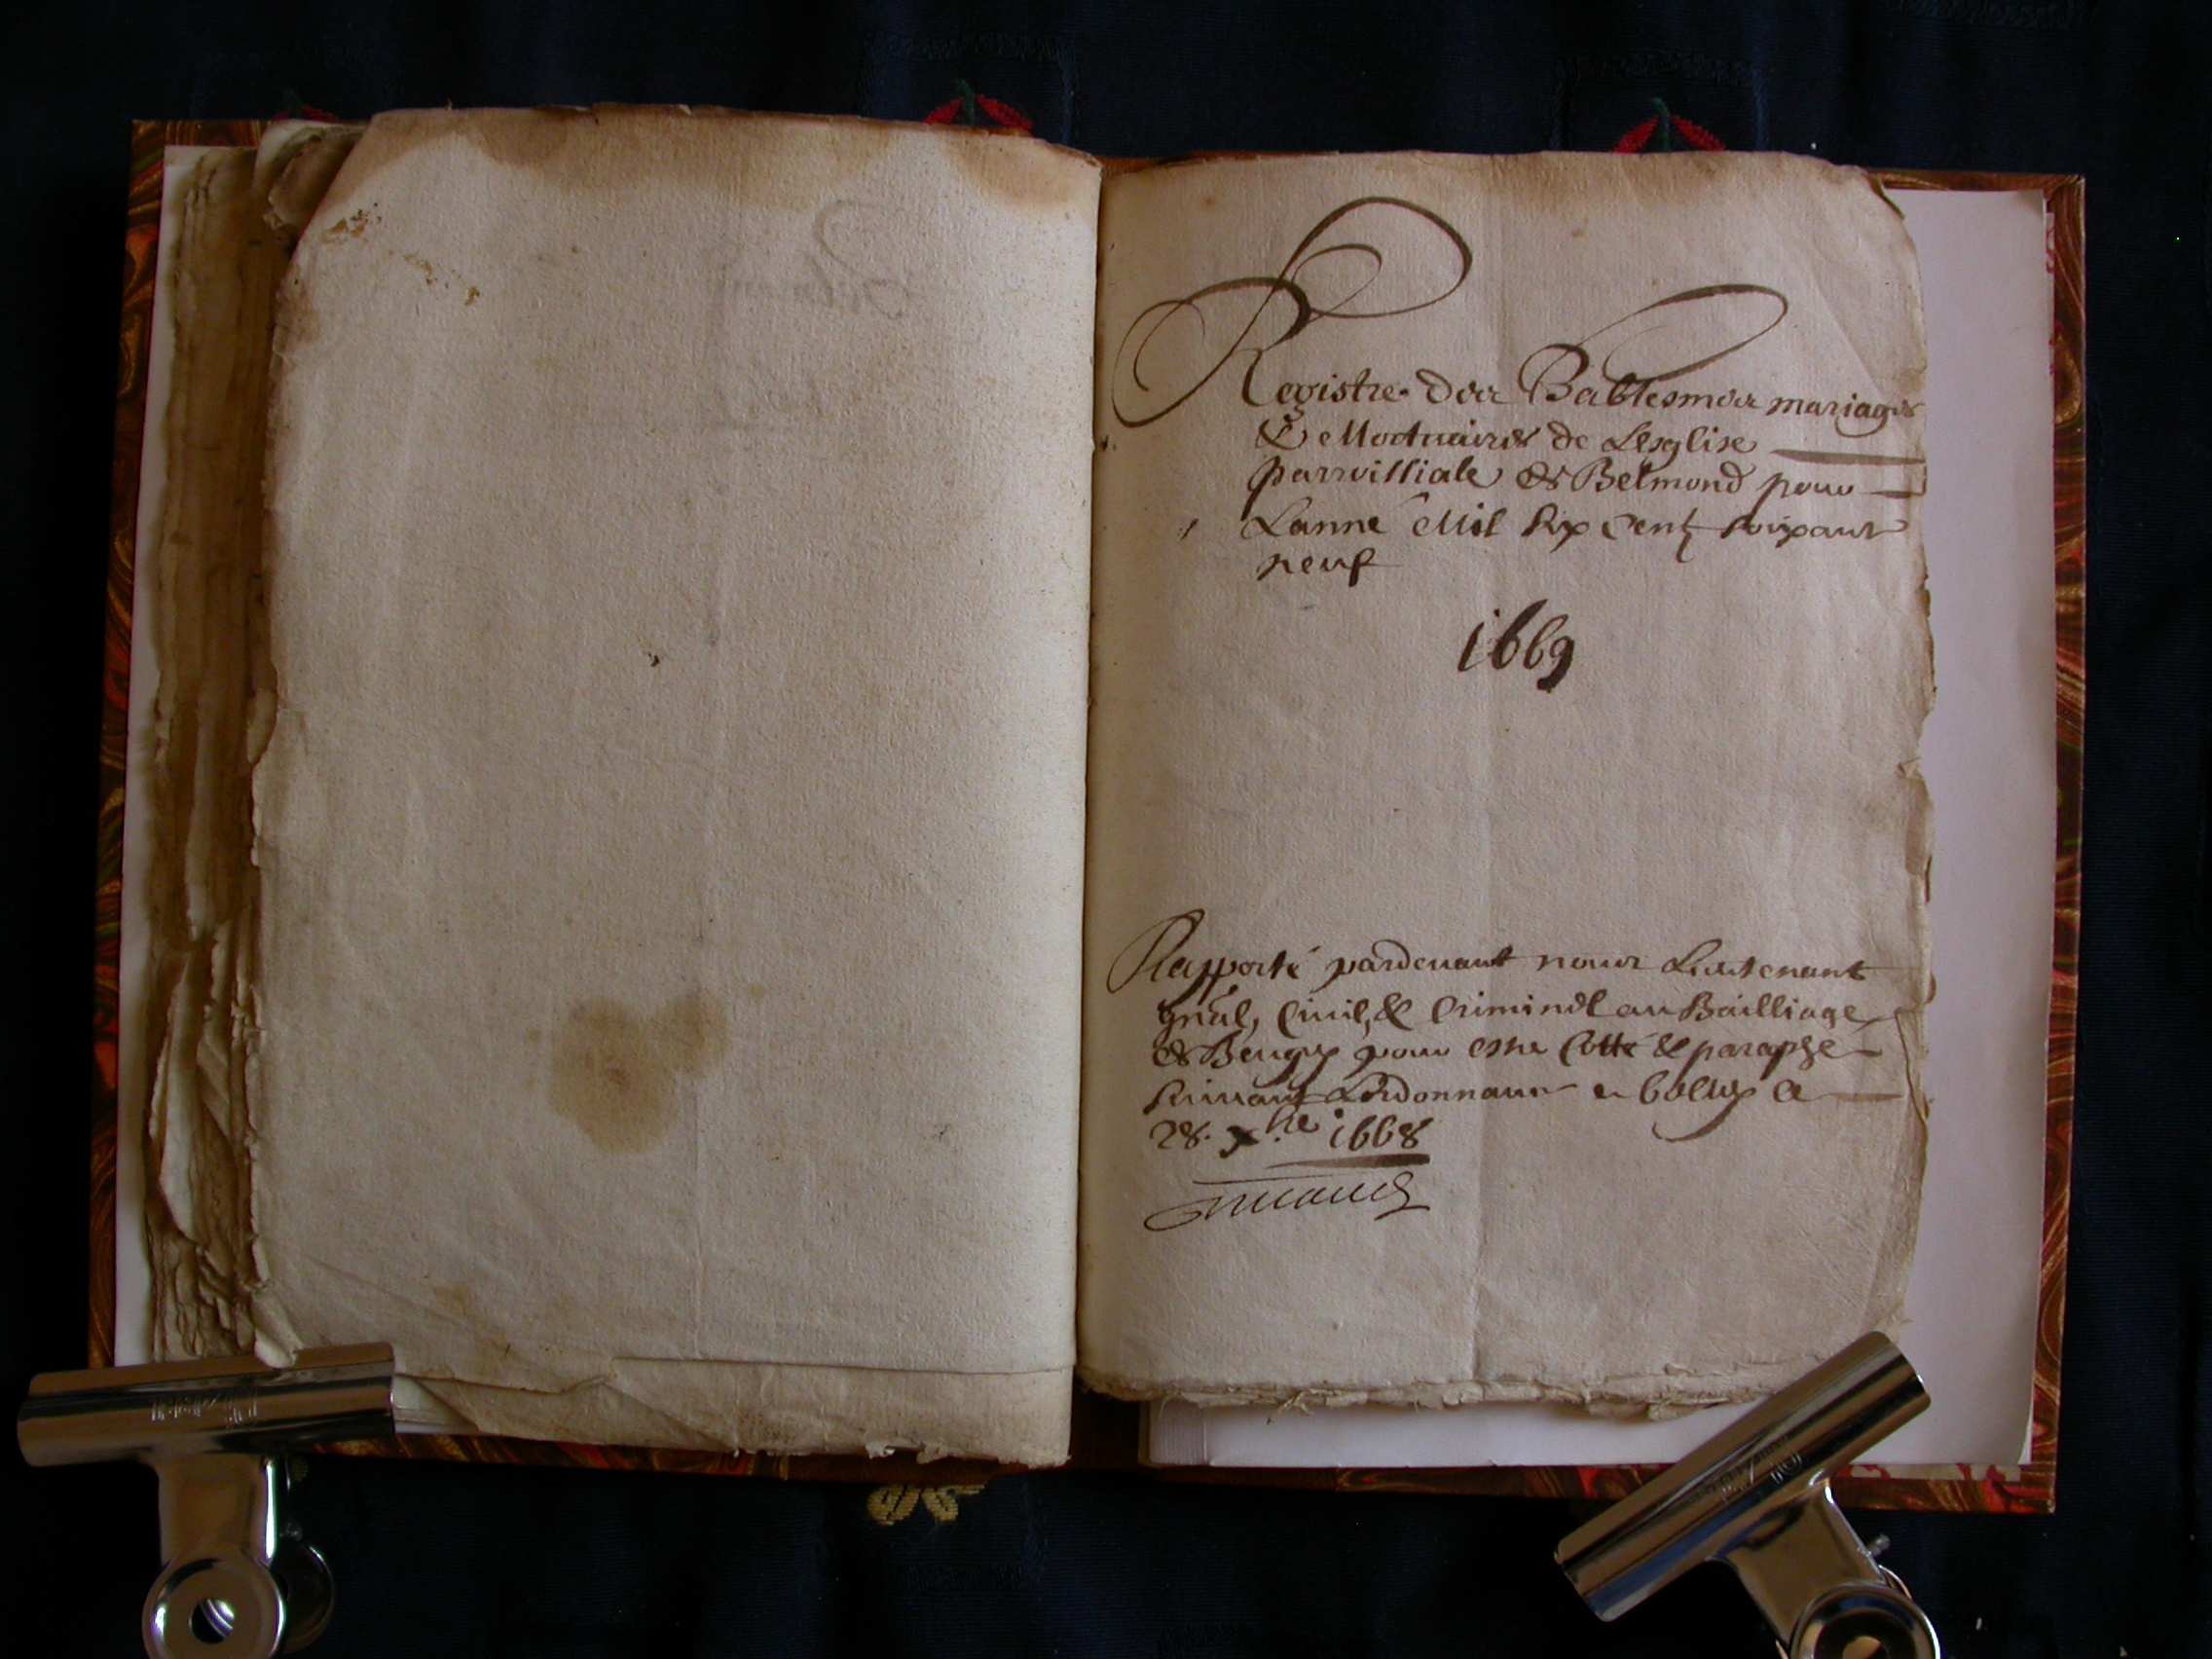 Registre des Babtesmes mariages
& Mortuaires de Lesglise
parroissiale de Belmond pour
Lanne Mil six Centz soixant
neuf
1669
Rapporté pardevant nous Lieutenant
gnãl, Civil, & Criminel au Bailliage
de Beugey pour estre Cotté & paraphe
suivant Lordonnance a belley ce
28. xbre 1668